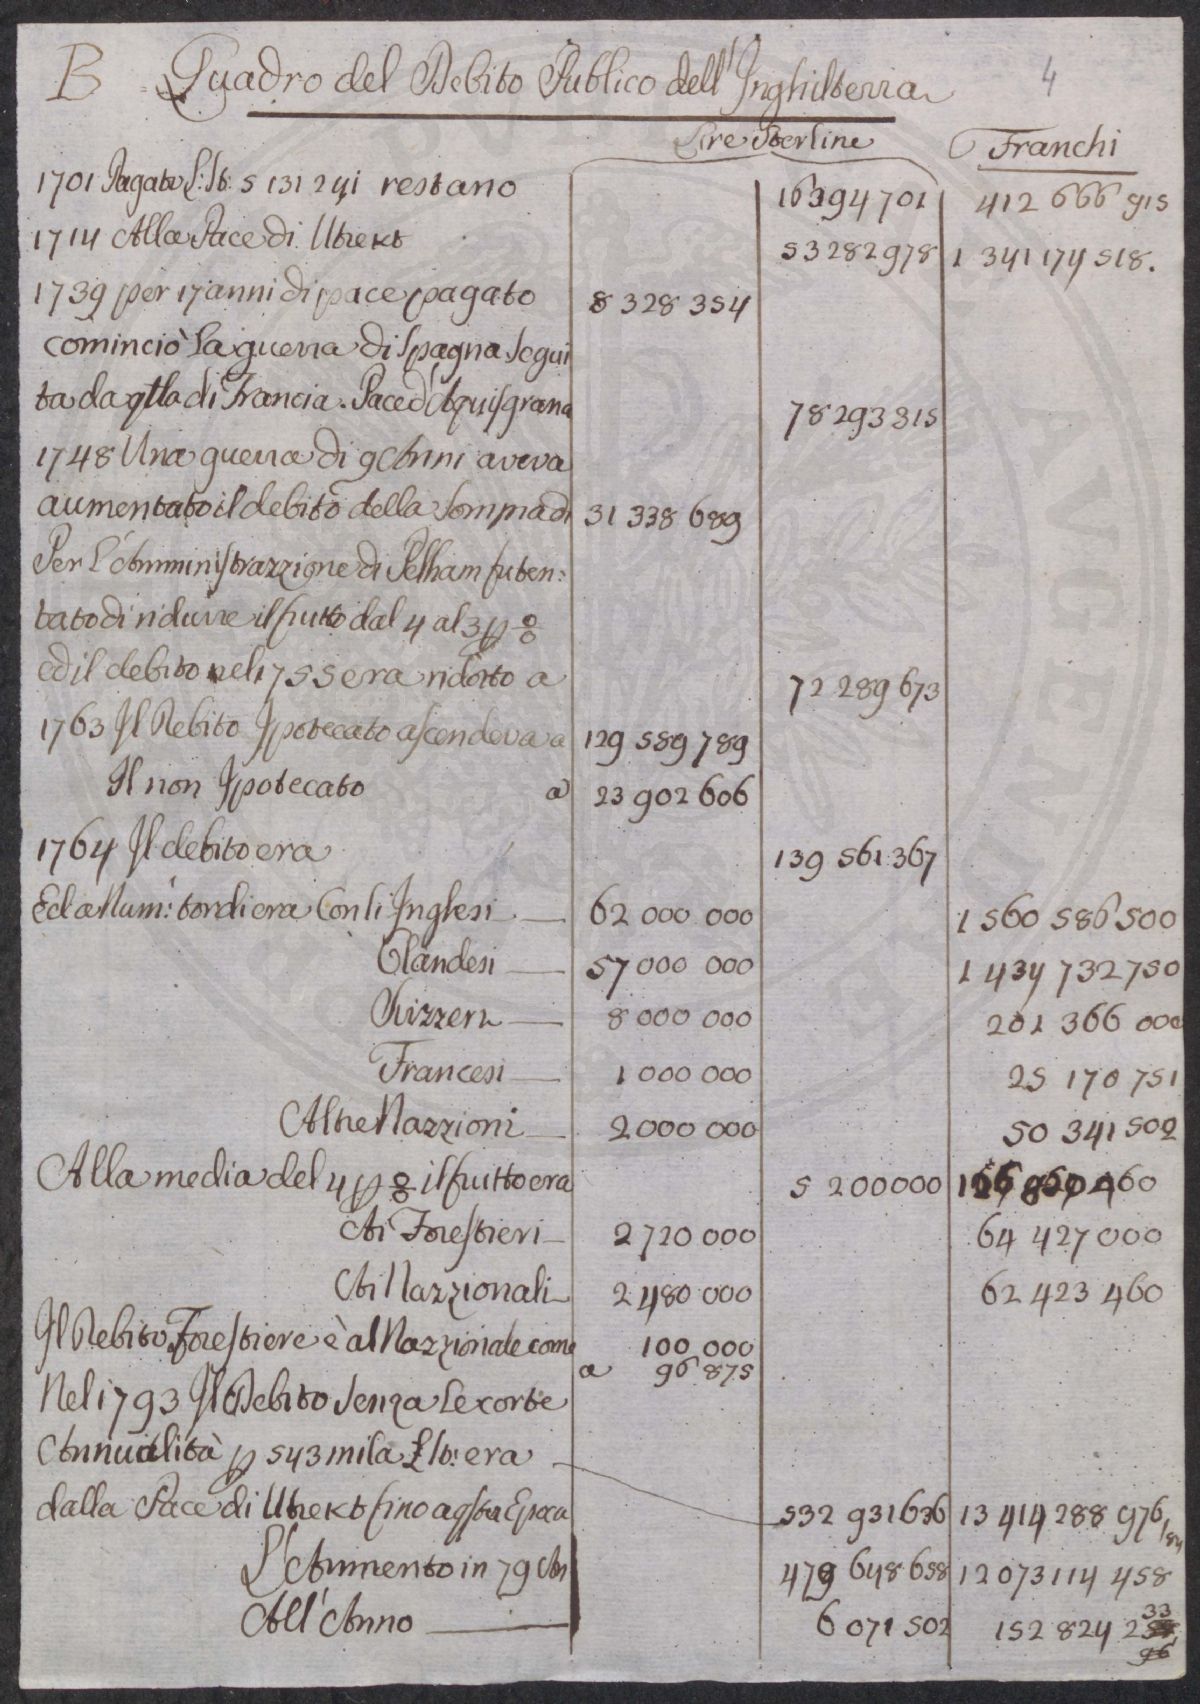 B Quadro del Debito Publico dell'Inghilterra 4
Lire Sterline Franchi
1701 Pagato L: St: 5 131 241 restano 16394701 412 666 915
1714 Alla Pace di Utrekt 53282978 1 341 174 518.
1739 per 17 anni di pace pagato 8 328 354
cominciò la guerra di Spagna segui
ta da qlla di Francia. Pace d'Aquisgrana 78 293 315
1748 Una guerra di 9 Anni aveva
aumentato il debito della Somma di 31 338 689
Per l'Amministrazzione di Pelham fu ten:
tato di ridurre il frutto dal 4 al 3 p %
ed il debito nel 1755 era ridotto a 72 289 673
1763 Il Debito Ipotecato ascendeva a 129 589 789
Il non Ipotecato a 23 902 606
1764 Il debito era 139 561 367
Ed a Num: tondi era Con li Inglesi 62 000 000 1 560 586 500
Olandesi 57 000 000 1 434 732 750
Svizzeri 8 000 000 201 366 000
Francesi 1 000 000 25 170 751
Altre Nazzioni 2 000 000 50 341 502
Alla media del 4 p % il frutto era 5 200000
Ai Forestieri 2 720 000 64 427 000
Ai Nazzionali 2 480 000 62 423 460
Il Debito Forestiere è al Nazzionale come 100 000
a 96 875
Nel 1793 Il Debito senza le corte
Annualità p 543 mila L St: era
dalla Pace di Utrekt fino a qsta Epoca 532 931636 13 414 288 976
L'Aumento in 79 An 479 648 658 12 073 114 458
All'Anno 6 071 502 152 824 2 33